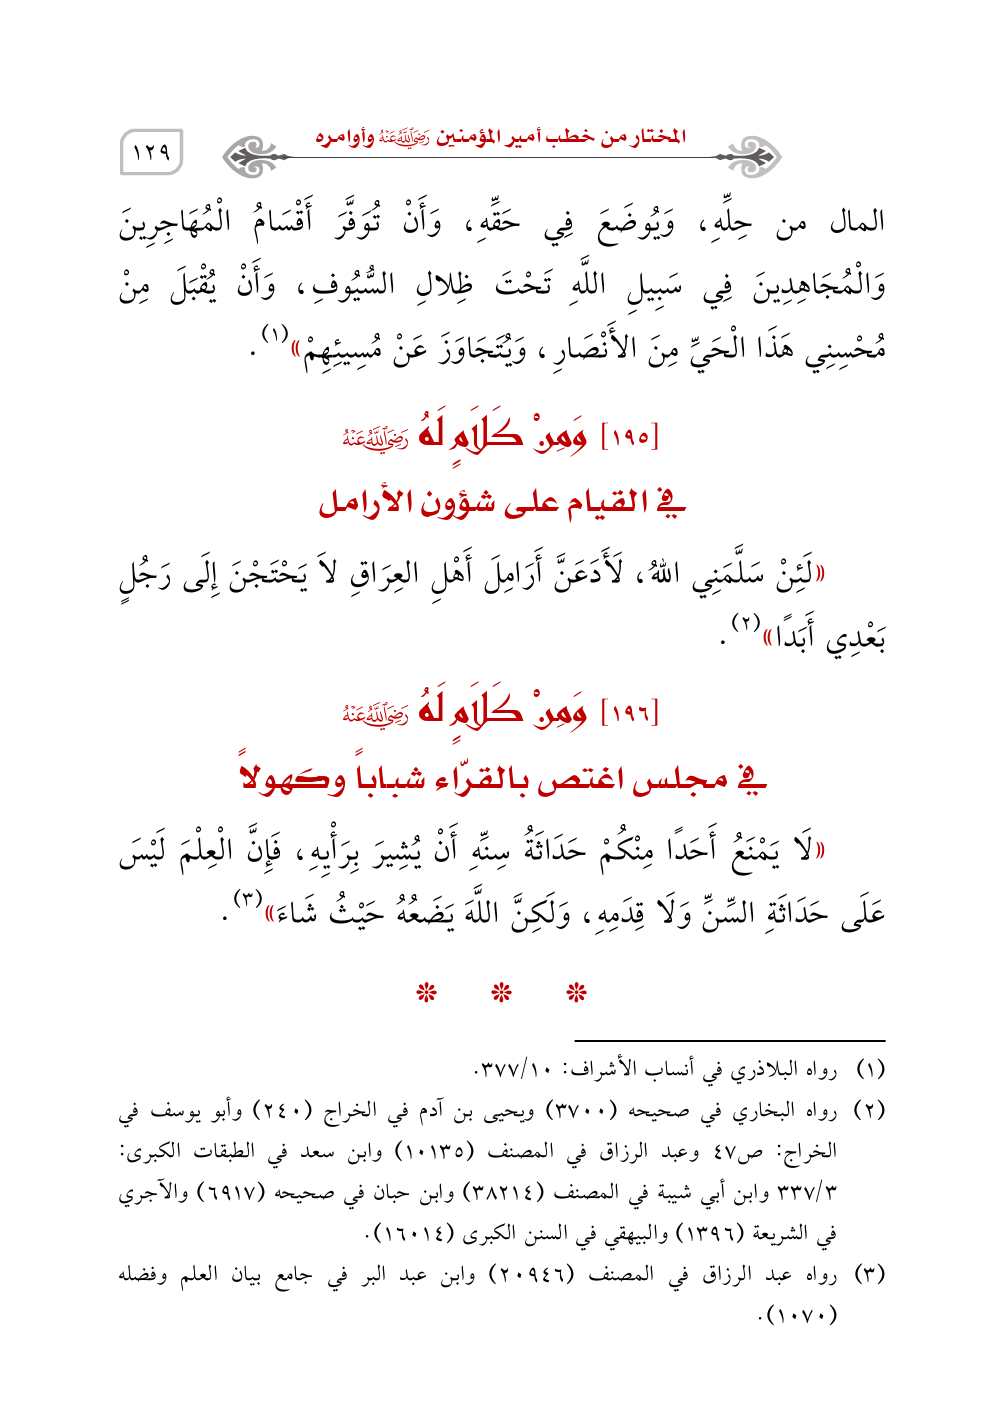 المختار من خطب أمير المؤمنين رَضِيَ اللَّهُ عَنْهُ وأوامره
١٢٩
المال من حِلِّهِ، وَيُوضَعَ فِي حَقِّهِ، وَأَنْ تُوَفَّرَ أَقْسَامُ الْمُهَاجِرِينَ
وَالْمُجَاهِدِينَ فِي سَبِيلِ اللَّهِ تَحْتَ ظِلالِ السُّيُوفِ، وَأَنْ يُقْبَلَ مِنْ
مُحْسِنِي هَذَا الْحَيِّ مِنَ الأَنْصَارِ، وَيُتَجَاوَزَ عَنْ مُسِيئِهِمْ»(١).
[١٩٥] وَمِنْ كَلَامٍ لَهُ رَضِيَ اللَّهُ عَنْهُ
في القيام على شؤون الأرامل
«لَئِنْ سَلَّمَنِي اللهُ، لَأَدَعَنَّ أَرَامِلَ أَهْلِ العِرَاقِ لاَ يَحْتَجْنَ إِلَى رَجُلٍ
بَعْدِي أَبَدًا»(٢).
[١٩٦] وَمِنْ كَلَامٍ لَهُ رَضِيَ اللَّهُ عَنْهُ
في مجلس اغتص بالقرّاء شباباً وكهولاً
«لَا يَمْنَعُ أَحَدًا مِنْكُمْ حَدَاثَةُ سِنِّهِ أَنْ يُشِيرَ بِرَأْيِهِ، فَإِنَّ الْعِلْمَ لَيْسَ
عَلَى حَدَاثَةِ السِّنِّ وَلَا قِدَمِهِ، وَلَكِنَّ اللَّهَ يَضَعُهُ حَيْثُ شَاءَ»(٣).
(١) رواه البلاذري في أنساب الأشراف: ٣٧٧/١٠.
(٢) رواه البخاري في صحيحه (٣٧٠٠) ويحيى بن آدم في الخراج (٢٤٠) وأبو يوسف في
الخراج: ص٤٧ وعبد الرزاق في المصنف (١٠١٣٥) وابن سعد في الطبقات الكبرى:
٣٣٧/٣ وابن أبي شيبة في المصنف (٣٨٢١٤) وابن حبان في صحيحه (٦٩١٧) والآجري
في الشريعة (١٣٩٦) والبيهقي في السنن الكبرى (١٦٠١٤).
(٣) رواه عبد الرزاق في المصنف (٢٠٩٤٦) وابن عبد البر في جامع بيان العلم وفضله
(١٠٧٠).